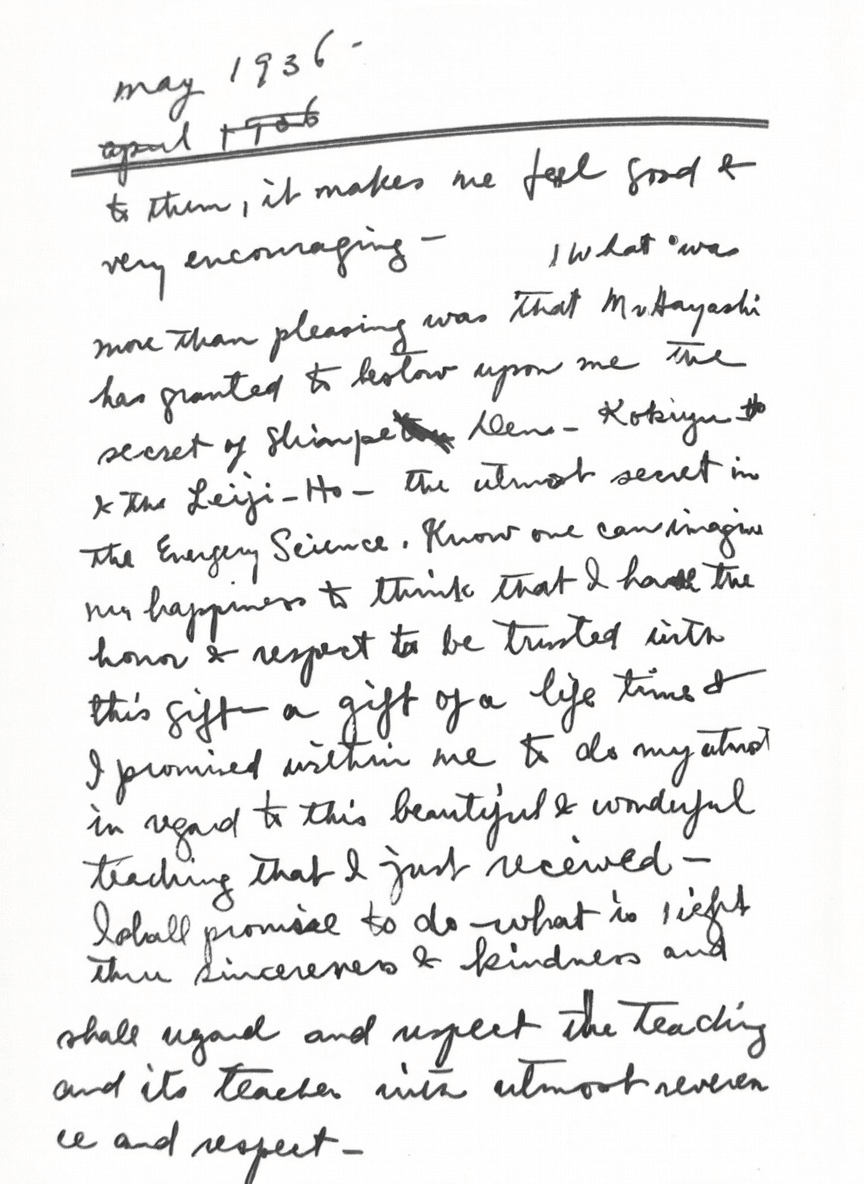 may 1936-
april 1936
to them, it makes me feel good &
very encouraging –
What was
more than pleasing was that Mr. Hayashi
has granted to bestow upon me the
secret of Shinpe Den – Kokiyu Ho
& the Leiji – Ho – the utmost secret in
the Energery Science. Know one can imagine
my happiness to think that I have the
honor & respect to be trusted with
this gift – a gift of a life time &
I promised within me to do my utmost
in regard to this beautiful & wonderful
teaching that I just received –
I shall promise to do what is right
thru sincereness & kindness and
shall regard and respect the teaching
and its teacher with utmost reveren
ce and respect –